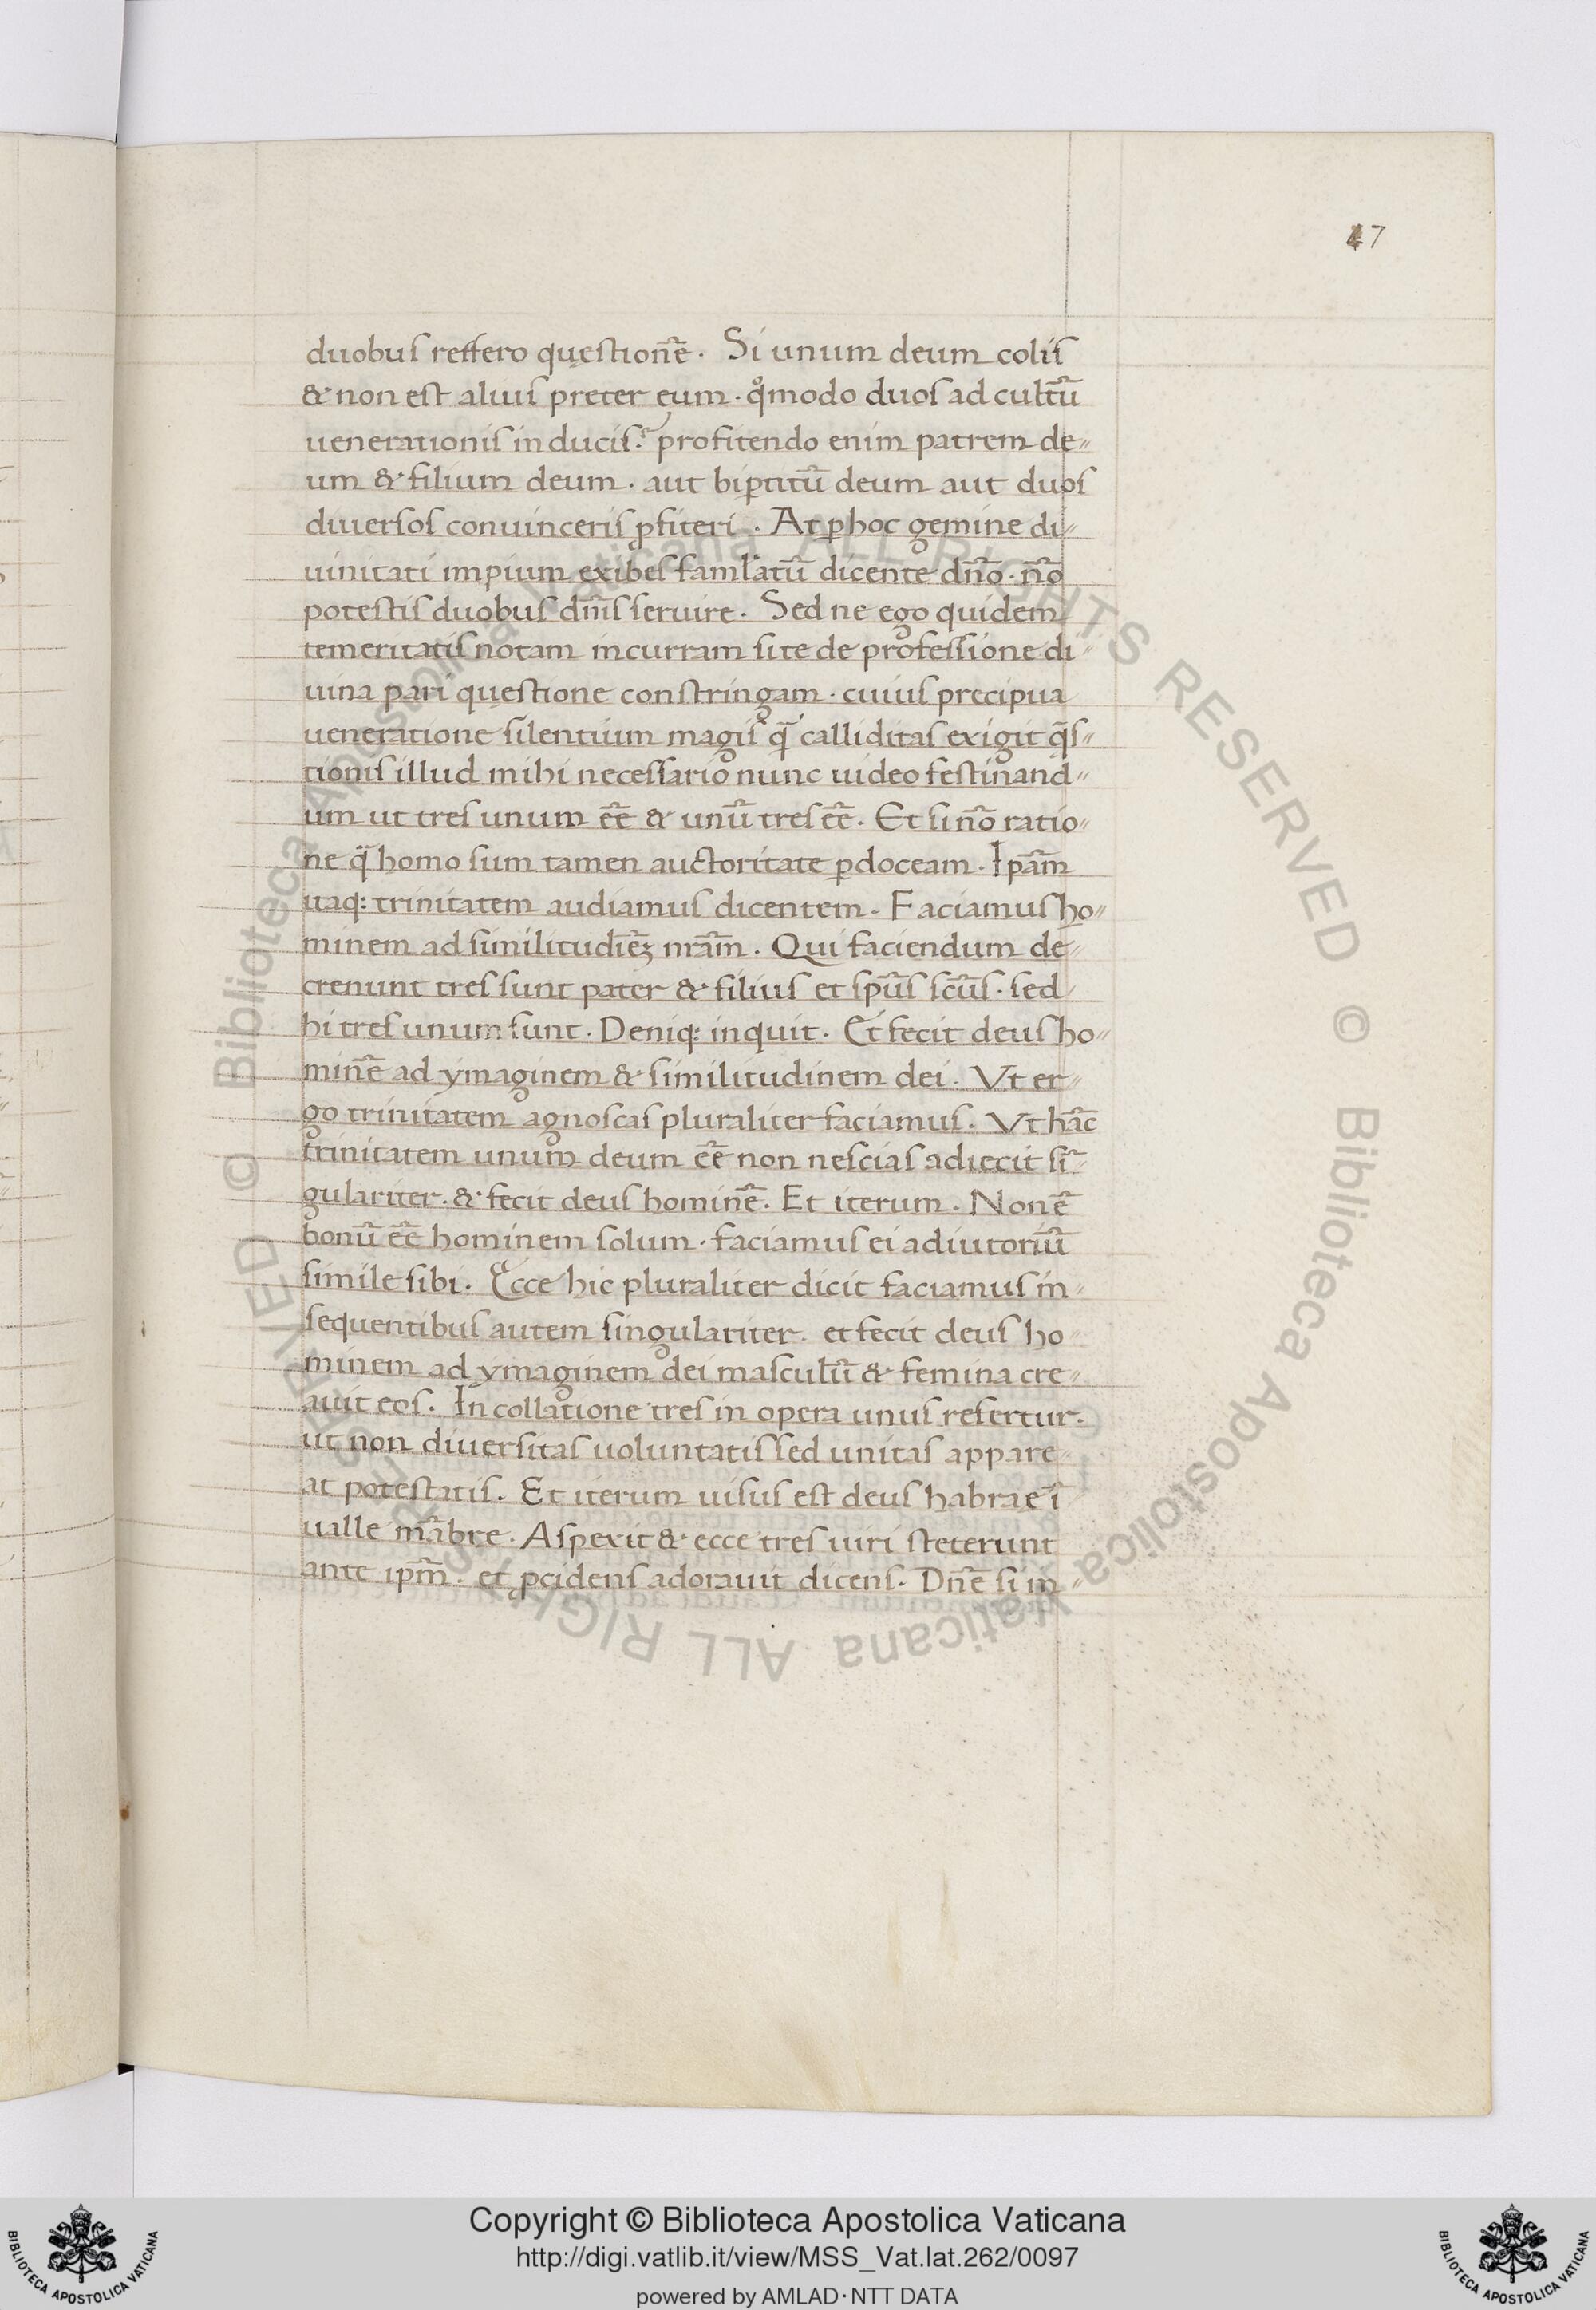 47
duobus reffero questionē. Si unum deum colis
& non est alius preter eum. qͦmodo duos ad cultū
uenerationis inducis? profitendo enim patrem de〃
um & filium deum. aut biꝑtitū deum aut duos
diuersos conuinceris ꝓfiteri. At ꝑ hoc gemine di〃
uinitati impium exibes famlatū dicente dn̄o. nō
potestis duobus dn̄is seruire. Sed ne ego quidem
temeritatis notam incurram si te de professione di〃
uina pari questione constringam. cuius precipua
ueneratione silentium magis q̄ calliditas exigit q̄s〃
tionis illud mihi necessario nunc uideo festinand〃
um ut tres unum eē & unū tres eē. Et si nō ratio〃
ne q̄ homo sum tamen auctoritate ꝑdoceam. Ipām
itaq: trinitatem audiamus dicentem. Faciamus ho〃
minem ad similitudiēꝫ nrām. Qui faciendum de〃
crenunt tres sunt pater & filius et spūs scūs. sed
hi tres unum sunt. Deniq: inquit. Et fecit deus ho〃
minē ad ymaginem & similitudinem dei. Vt er〃
go trinitatem agnoscas pluraliter faciamus. Vt hāc
trinitatem unum deum eē non nescias adiecit sī〃
gulariter. & fecit deus hominē. Et iterum. Non ē
bonū eē hominem solum. faciamus ei adiutoriū
simile sibi. Ecce hic pluraliter dicit faciamus in〃
sequentibus autem singulariter. et fecit deus ho〃
minem ad ymaginem dei masculū & femina cre〃
auit eos. In collatione tres in opera unus refertur.
ut non diuersitas uoluntatis sed unitas appare〃
at potestatis. Et iterum uisus est deus habrae ī
ualle mābre. Aspexit & ecce tres uiri steterunt
ante ipm̄. et ꝓcidens adorauit dicens. Dn̄e si in〃
© Biblioteca Apostolica Vaticana ALL RIGHTS RESERVED © Biblioteca Apostolica Vaticana ALL RIGHTS RESERVED
Copyright © Biblioteca Apostolica Vaticana
http://digi.vatlib.it/view/MSS_Vat.lat.262/0097
powered by AMLAD·NTT DATA
BIBLIOTECA APOSTOLICA VATICANA
BIBLIOTECA APOSTOLICA VATICANA